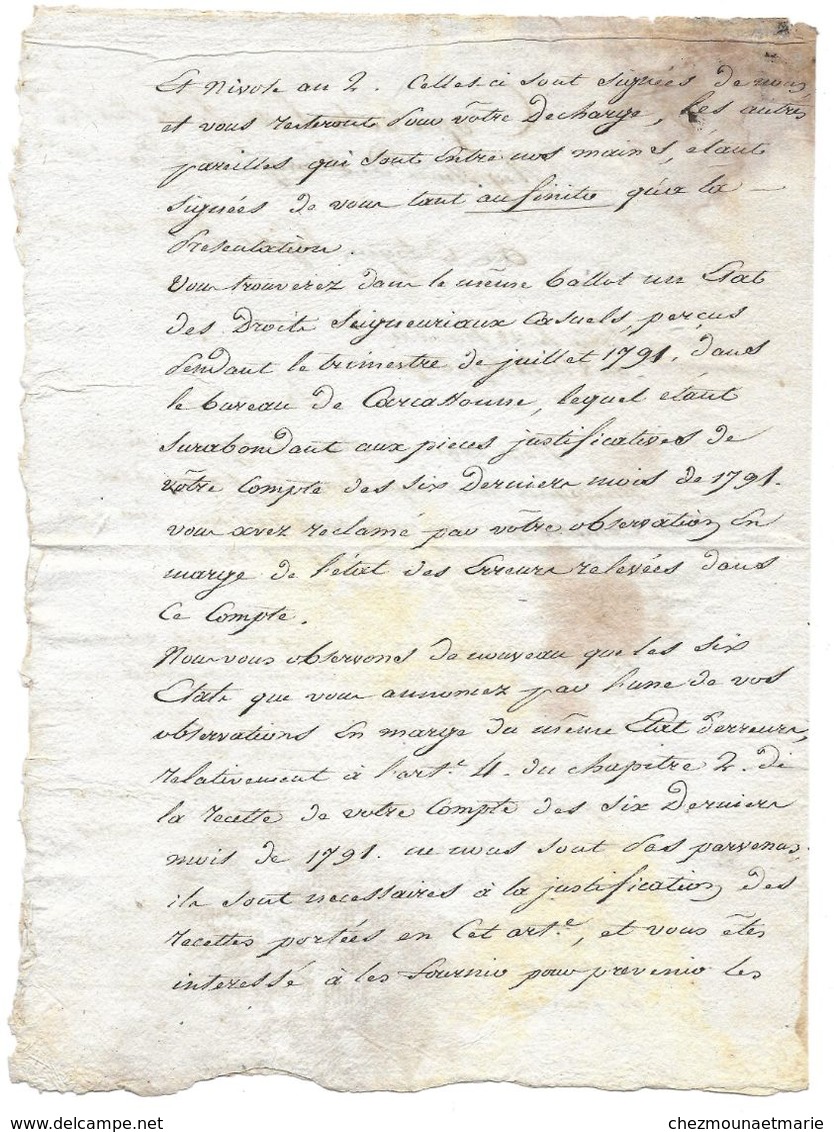 Et Nivose an 2. Celles-ci sont signées de nous
et vous resteront pour vôtre Decharge, les autres
pareilles qui sont Entre nos mains, étant
signées de vous tant au finito qu'a la —
presentation.
Vous trouverez dans le même ballot un Etat
des Droits seigneuriaux casuels, perçus
pendant le trimestre de juillet 1791. dans
le bureau de Carcassonne, lequel étant
surabondant aux pieces justificatives de
vôtre Compte des six Derniers mois de 1791.
vous avez reclamé par vôtre observation En
marge de l'état des Erreurs relevées dans
Ce Compte.
Nous vous observons de nouveau que les six
Etats que vous annoncez par l'une de vos
observations En marge du même Etat d'erreurs,
relativement à l'art.e 4. du chapitre 2. de
la recette de votre Compte des six Derniers
mois de 1791. ne nous sont pas parvenus,
ils sont necessaires à la justification des
recettes portées en Cet art.e, et vous êtes
interessé à les fournir pour prevenir les
chezmounaetmarie